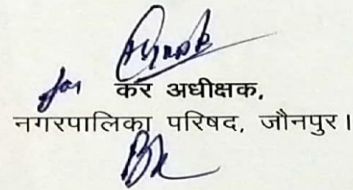 for
कर अधीक्षक,
नगरपालिका परिषद, जौनपुर।